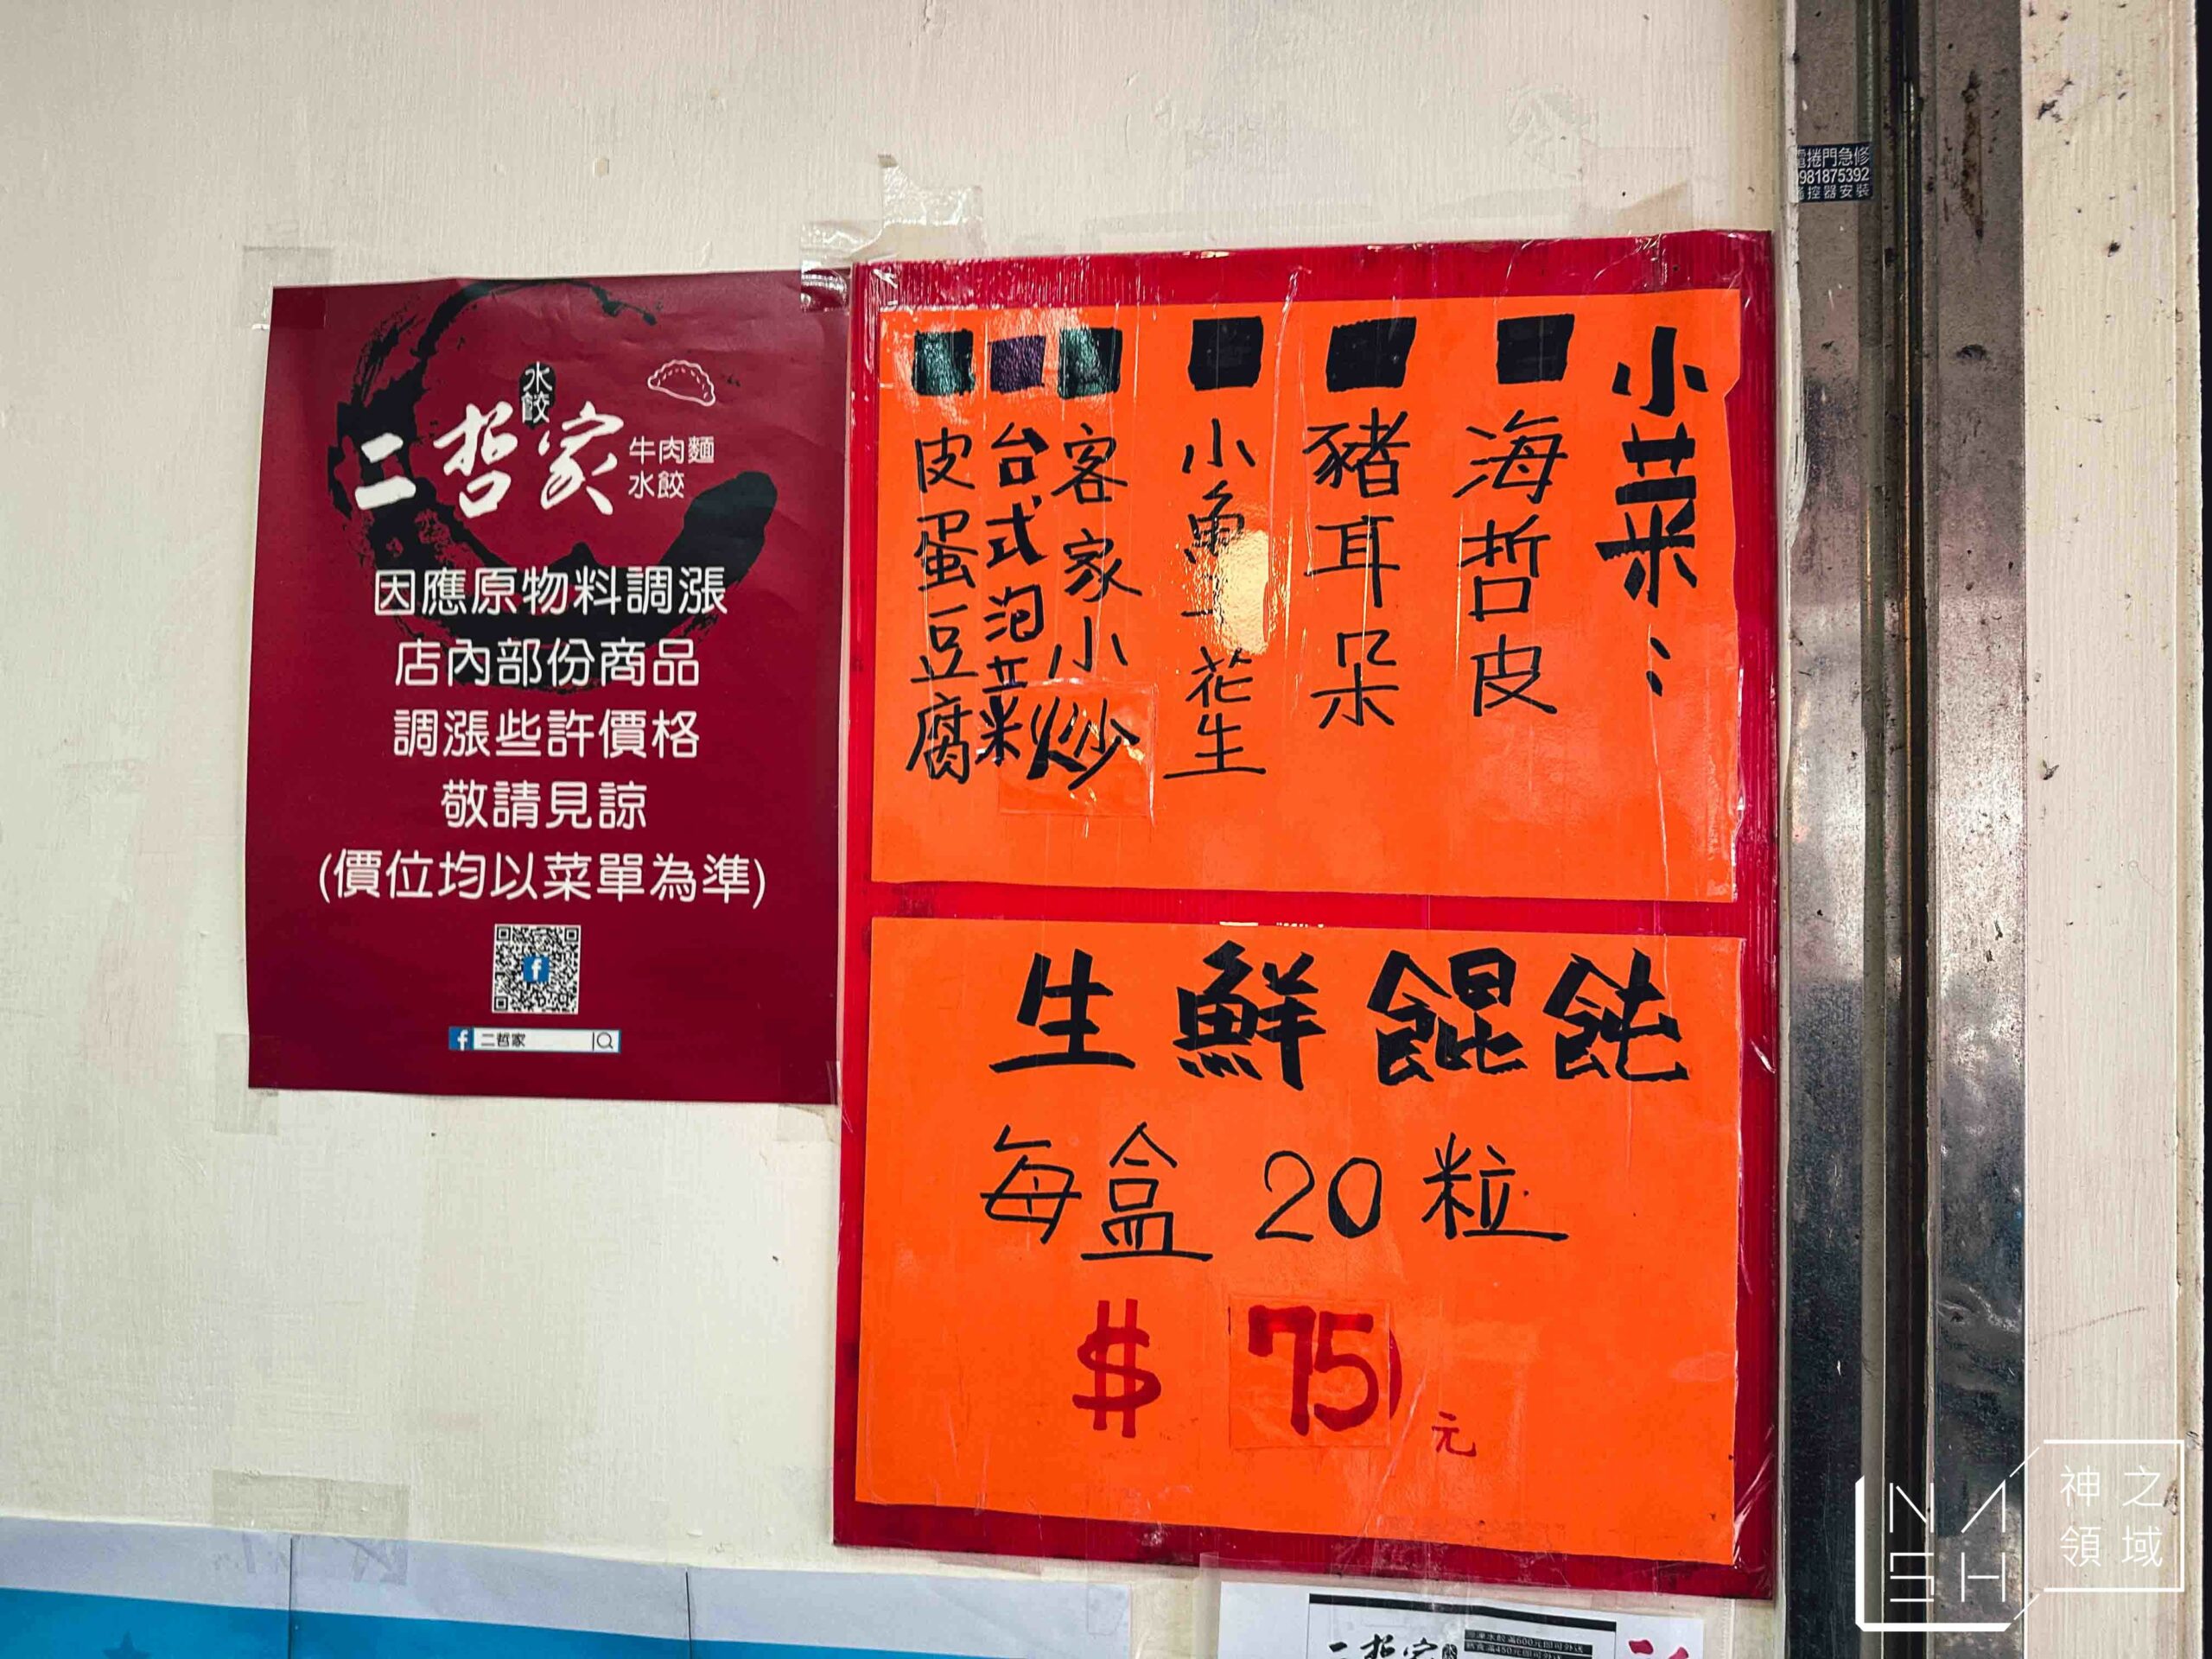 水餃
二哲家
牛肉麵
水餃
因應原物料調漲
店內部份商品
調漲些許價格
敬請見諒
(價位均以菜單為準)
f 二哲家
小菜：
海哲皮
豬耳朵
小魚 花生
客家小炒
台式泡菜
皮蛋豆腐
生鮮餛飩
每盒 20 粒
$ 75 元
捲門急修
981875392
控器安裝
二哲家
NASH
神之
領域